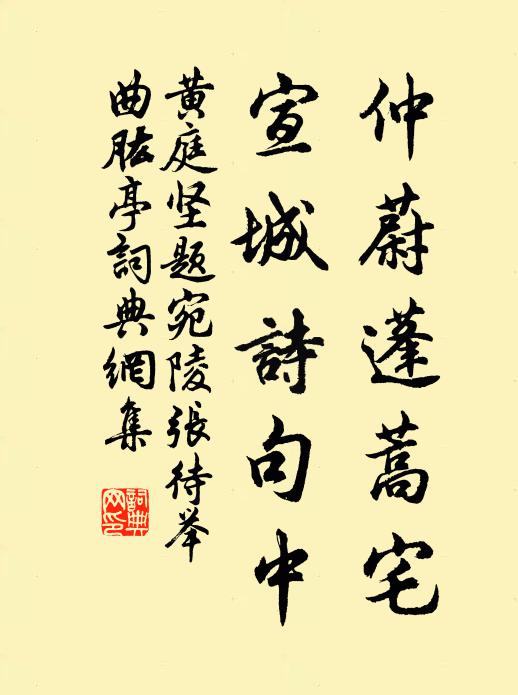 仲蔚蓬蒿宅
宣城詩句中
黄庭坚题宛陵張待举
曲肱亭詞典網集
詞典
网印